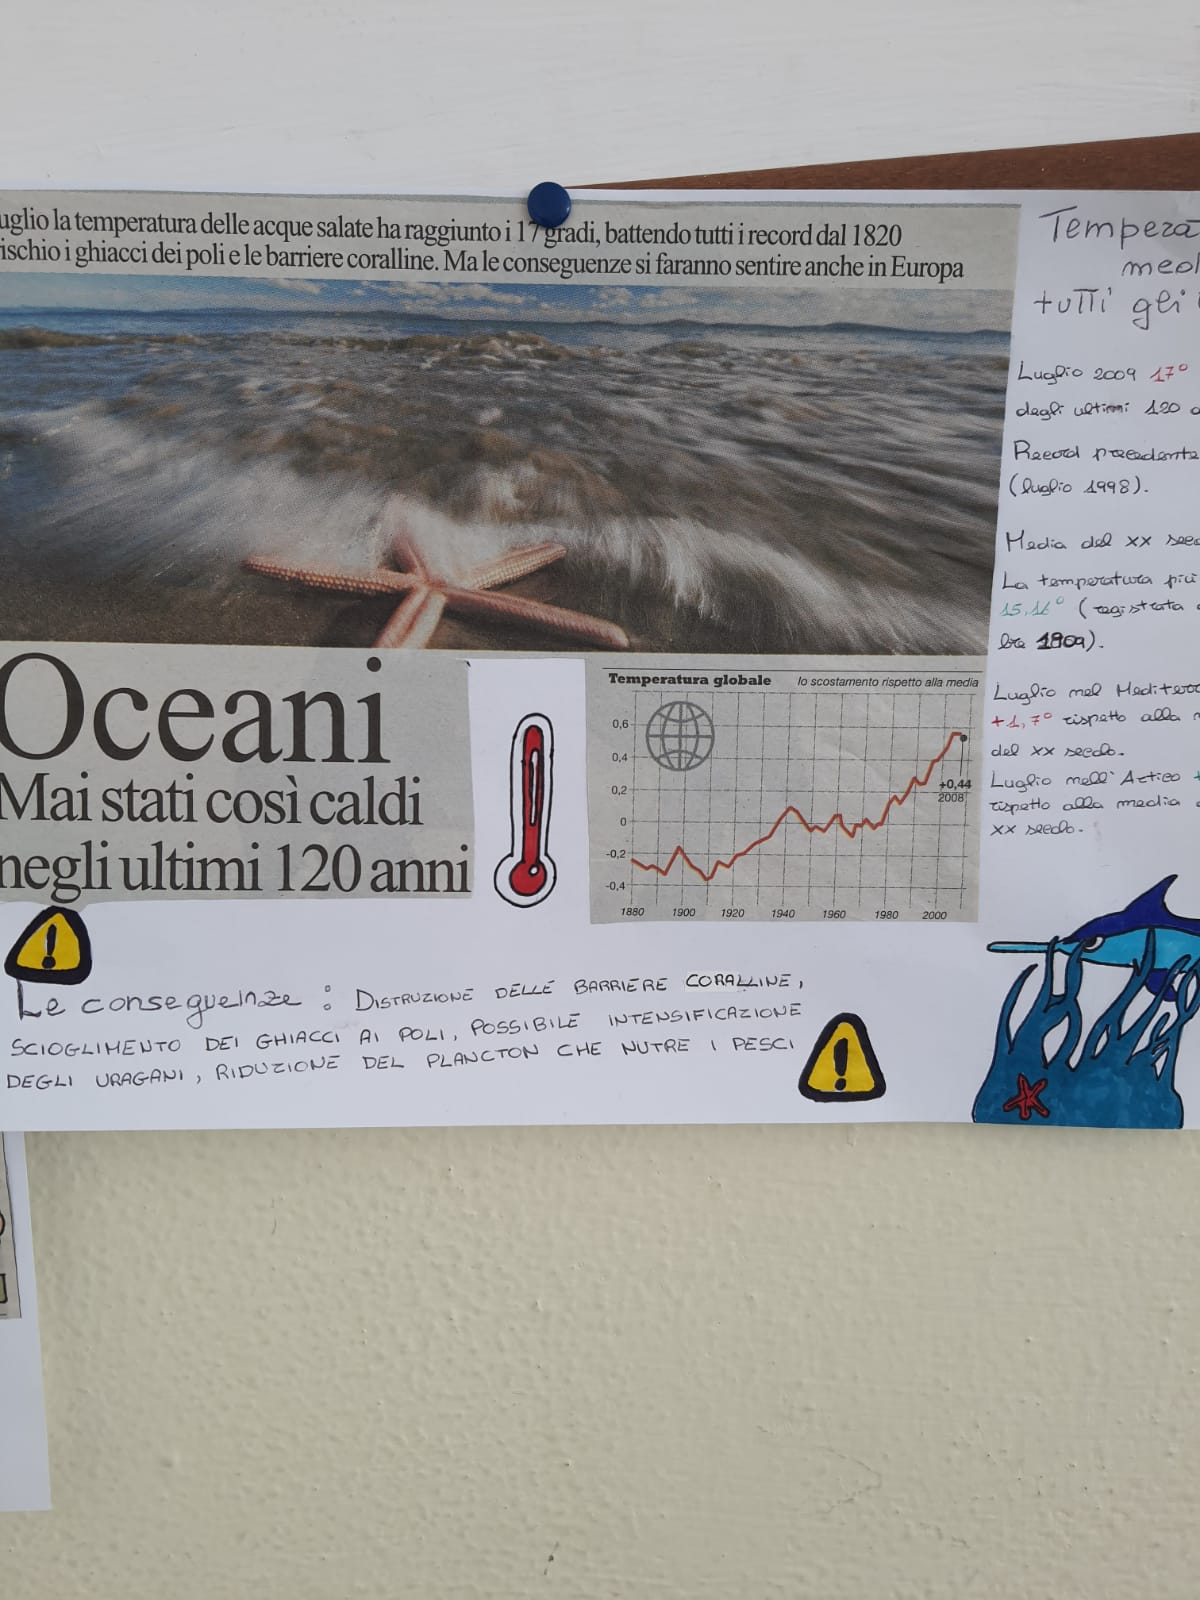 uglio la temperatura delle acque salate ha raggiunto i 17 gradi, battendo tutti i record dal 1820
ischio i ghiacci dei poli e le barriere coralline. Ma le conseguenze si faranno sentire anche in Europa
Oceani
Mai stati così caldi
negli ultimi 120 anni
Temperatura globale
lo scostamento rispetto alla media
0,6
0,4
0,2
0
-0,2
-0,4
+0,44
2008
1880 1900 1920 1940 1960 1980 2000
Le conseguenze : DISTRUZIONE DELLE BARRIERE CORALLINE,
SCIOGLIMENTO DEI GHIACCI AI POLI, POSSIBILE INTENSIFICAZIONE
DEGLI URAGANI, RIDUZIONE DEL PLANCTON CHE NUTRE I PESCI
Tempera
med
tutti gli
Luglio 2009 17°
degli ultimi 120 a
Record precedente
(luglio 1998).
Media del XX seco
La temperatura più
15,16° (registrata
).
Luglio nel Mediterr
+1,7° rispetto alla
del XX secolo.
Luglio nell'Artico
rispetto alla media
XX secolo.